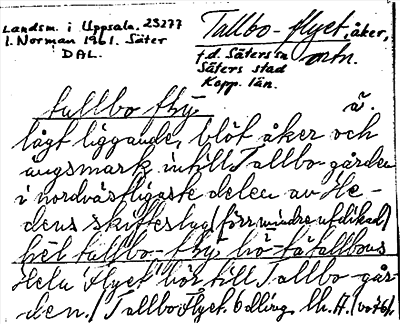 Landsm. i Uppsala. 23277
I. Norman 1961. Säter
DAL.
Tallbo-flyet, åker,
f.d. Säters sn
Säters stad
Kopp. län.
tallbo fly
lågt liggande, blöt åker och
ängsmark intill Tallbo gården
i nordvästligaste delen av He-
dens skifteslag (förr mindre utdikad)
hela flyet hör till Tallbo går-
den. (Tallbo flyet. Odling